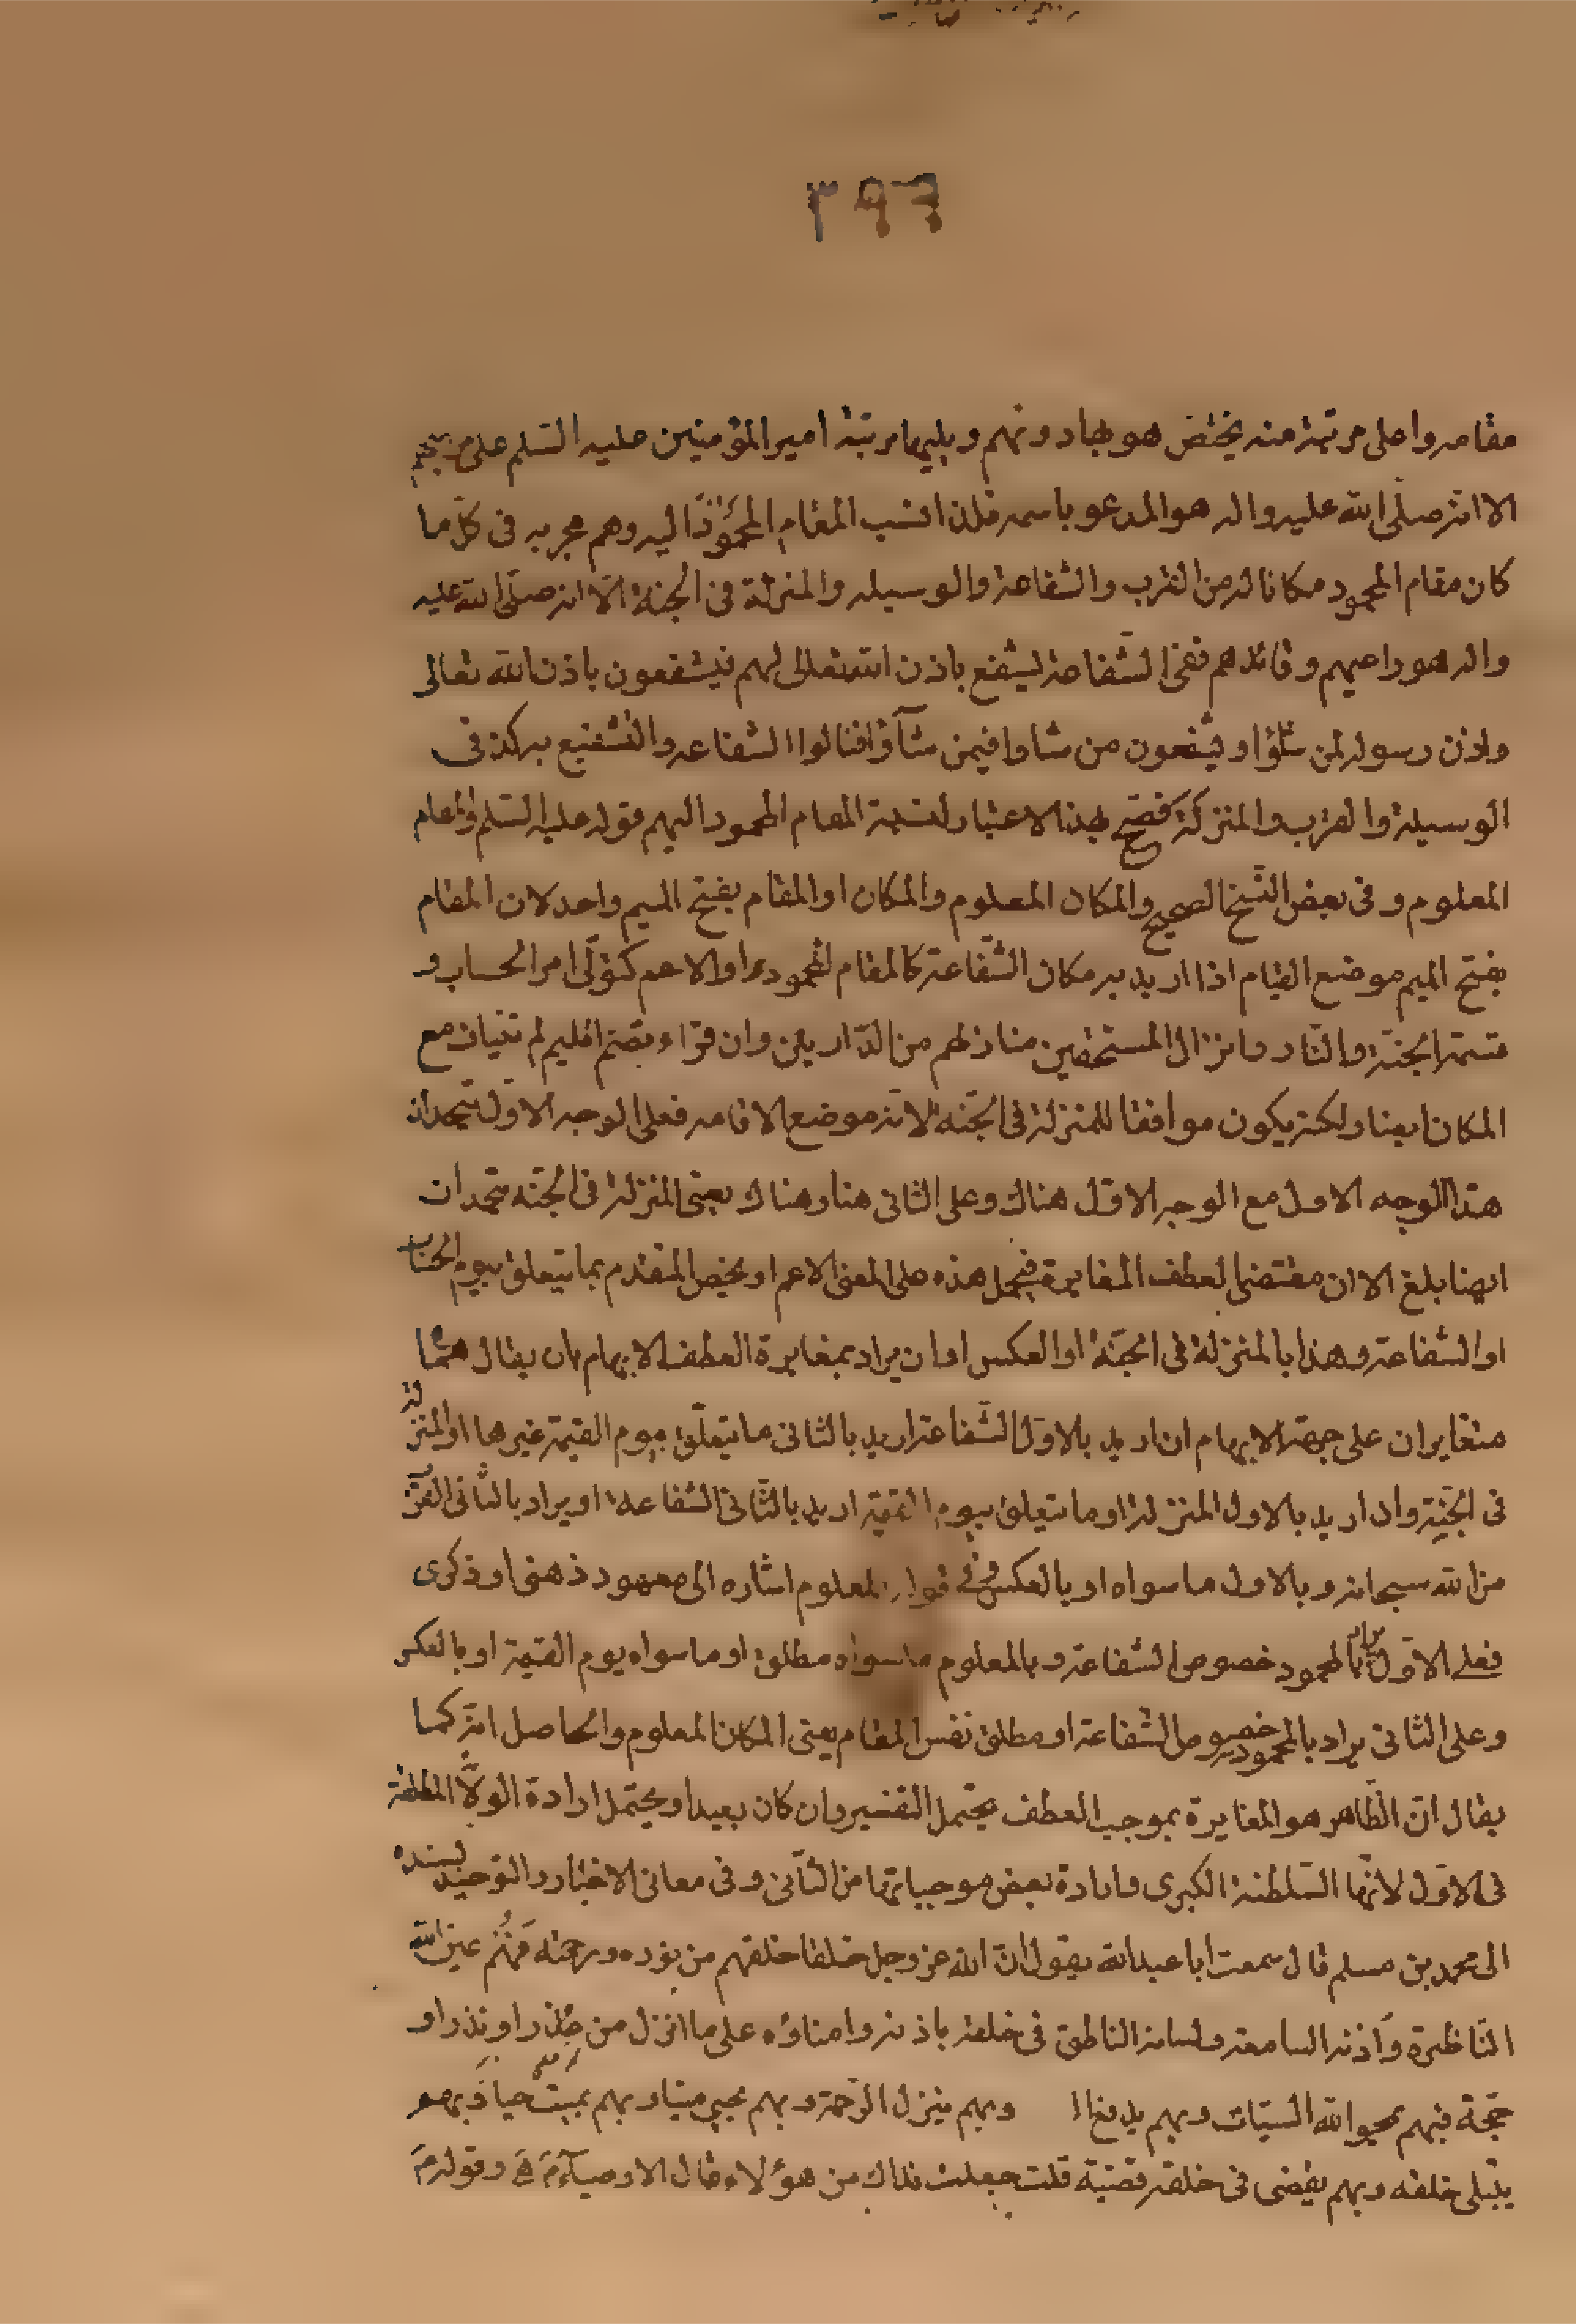 ٣٩٦
مقامه واعلى مرتبة منه يختص هو بها دونهم ويليها مرتبة امير المؤمنين عليه السّلم على مرتبتهم
الا انّه صلّى الله عليه واله هو المدعو باسمه فلذا انتسب المقام المحمود اليه وهم معه به فى كلّ ما
كان مقام المحمود مكانا له من القرب والشفاعة والوسيله والمنزلة فى الجنّة الّا انه صلّى الله عليه
واله هو داعيهم وقائدهم ففى الشّفاعة ليشفع باذن الله تعالى لهم فيشفعون باذن الله تعالى
واذن رسوله لمن شاؤا ويشفعون من شاوا فيمن شاؤا فنالوا الشفاعه والتشفيع به كذ فى
الوسيلة والقرب والمنزلة فصحّ بهذا الاعتبار نسبة المقام المحمود اليهم قوله عليه السّلم والمقام
المعلوم وفى بعض النّسخ الصحيح والمكان المعلوم والمكان او المقام بفتح الميم واحد لان المقام
بفتح الميم موضع القيام اذا اريد به مكان الشّفاعة كالمقام المحمود او الاعم كتولّى امر الحساب و
قسمة الجنّة والنّار وانزال المستحقين منازلهم من الدّارين وان قراء بضم الميم لم تنياف مع
المكان ايضا ولكنّه يكون موافقا للمنزلة فى الجنّه لانّه موضع الاقامه فعلى الوجه الاوّل يتّحدان
هذا الوجه الاول مع الوجه الاوّل هناك وعلى الثانى هنا وهناك يعنى المنزلة فى الجنّه يتحدان
ايضا بلغ الا ان مقتضى العطف المغايرة فيحمل هذه على المعنى الاعم او يخص المتقدم بما يتعلق بيوم الحساب
او الشّفاعة وهذا بالمنزلة فى الجنّة او العكس او ان يراد بمغايرة العطف الابهام بان يقال هما
متغايران على جهة الابهام ان اريد بالاوّل الشّفاعة اريد بالثانى ما يتعلّق بيوم القيمة غيرها او المنزلة
فى الجنّة وان اريد بالاول المنزلة او ما يتعلق بيوم القيمة اريد بالثّانى الشفاعة او يراد بالثّانى القرب
من الله سبحانه وبالاول ما سواه او بالعكس وفى قوله المعلوم اشاره الى معهود ذهنى او ذكرى
فعلى الاوّل يراد بالمحمود خصوص الشفاعة وبالمعلوم ما سواه مطلق او ما سواه يوم القيمة او بالعكس
وعلى الثانى يراد بالمحمود خصوص الشفاعة او مطلق نفس المقام يعنى المكان المعلوم والحاصل انّه كما
يقال انّ الظّاهر هو المغايرة بموجب العطف يحتمل التفسير وان كان بعيدا ويحتمل ارادة الولاء المطلقة
فى الاوّل لانّها السّلطنة الكبرى وارادة بعض موجباتها من الثّانى وفى معانى الاخبار والتوحيد بسنده
الى محمد بن مسلم قال سمعت ابا عبدالله يقول انّ الله عز وجل خلقا خلقهم من نوره ورحمته فهم عين الله
النّاظرة واذنه السامعة ولسانه الناطق فى خلقه باذنه وامناؤه على ما انزل من عذر او نذر او
حجّة فبهم يمحوا الله السيّات وبهم يدفع ا وبهم ينزل الرّحمة وبهم يحيى ميتا وبهم يميت حيا وبهم
يبتلى خلقه وبهم يقضى فى خلقه قضيّة قلت جعلت فداك من هؤلاء قال الاوصياء وقوله